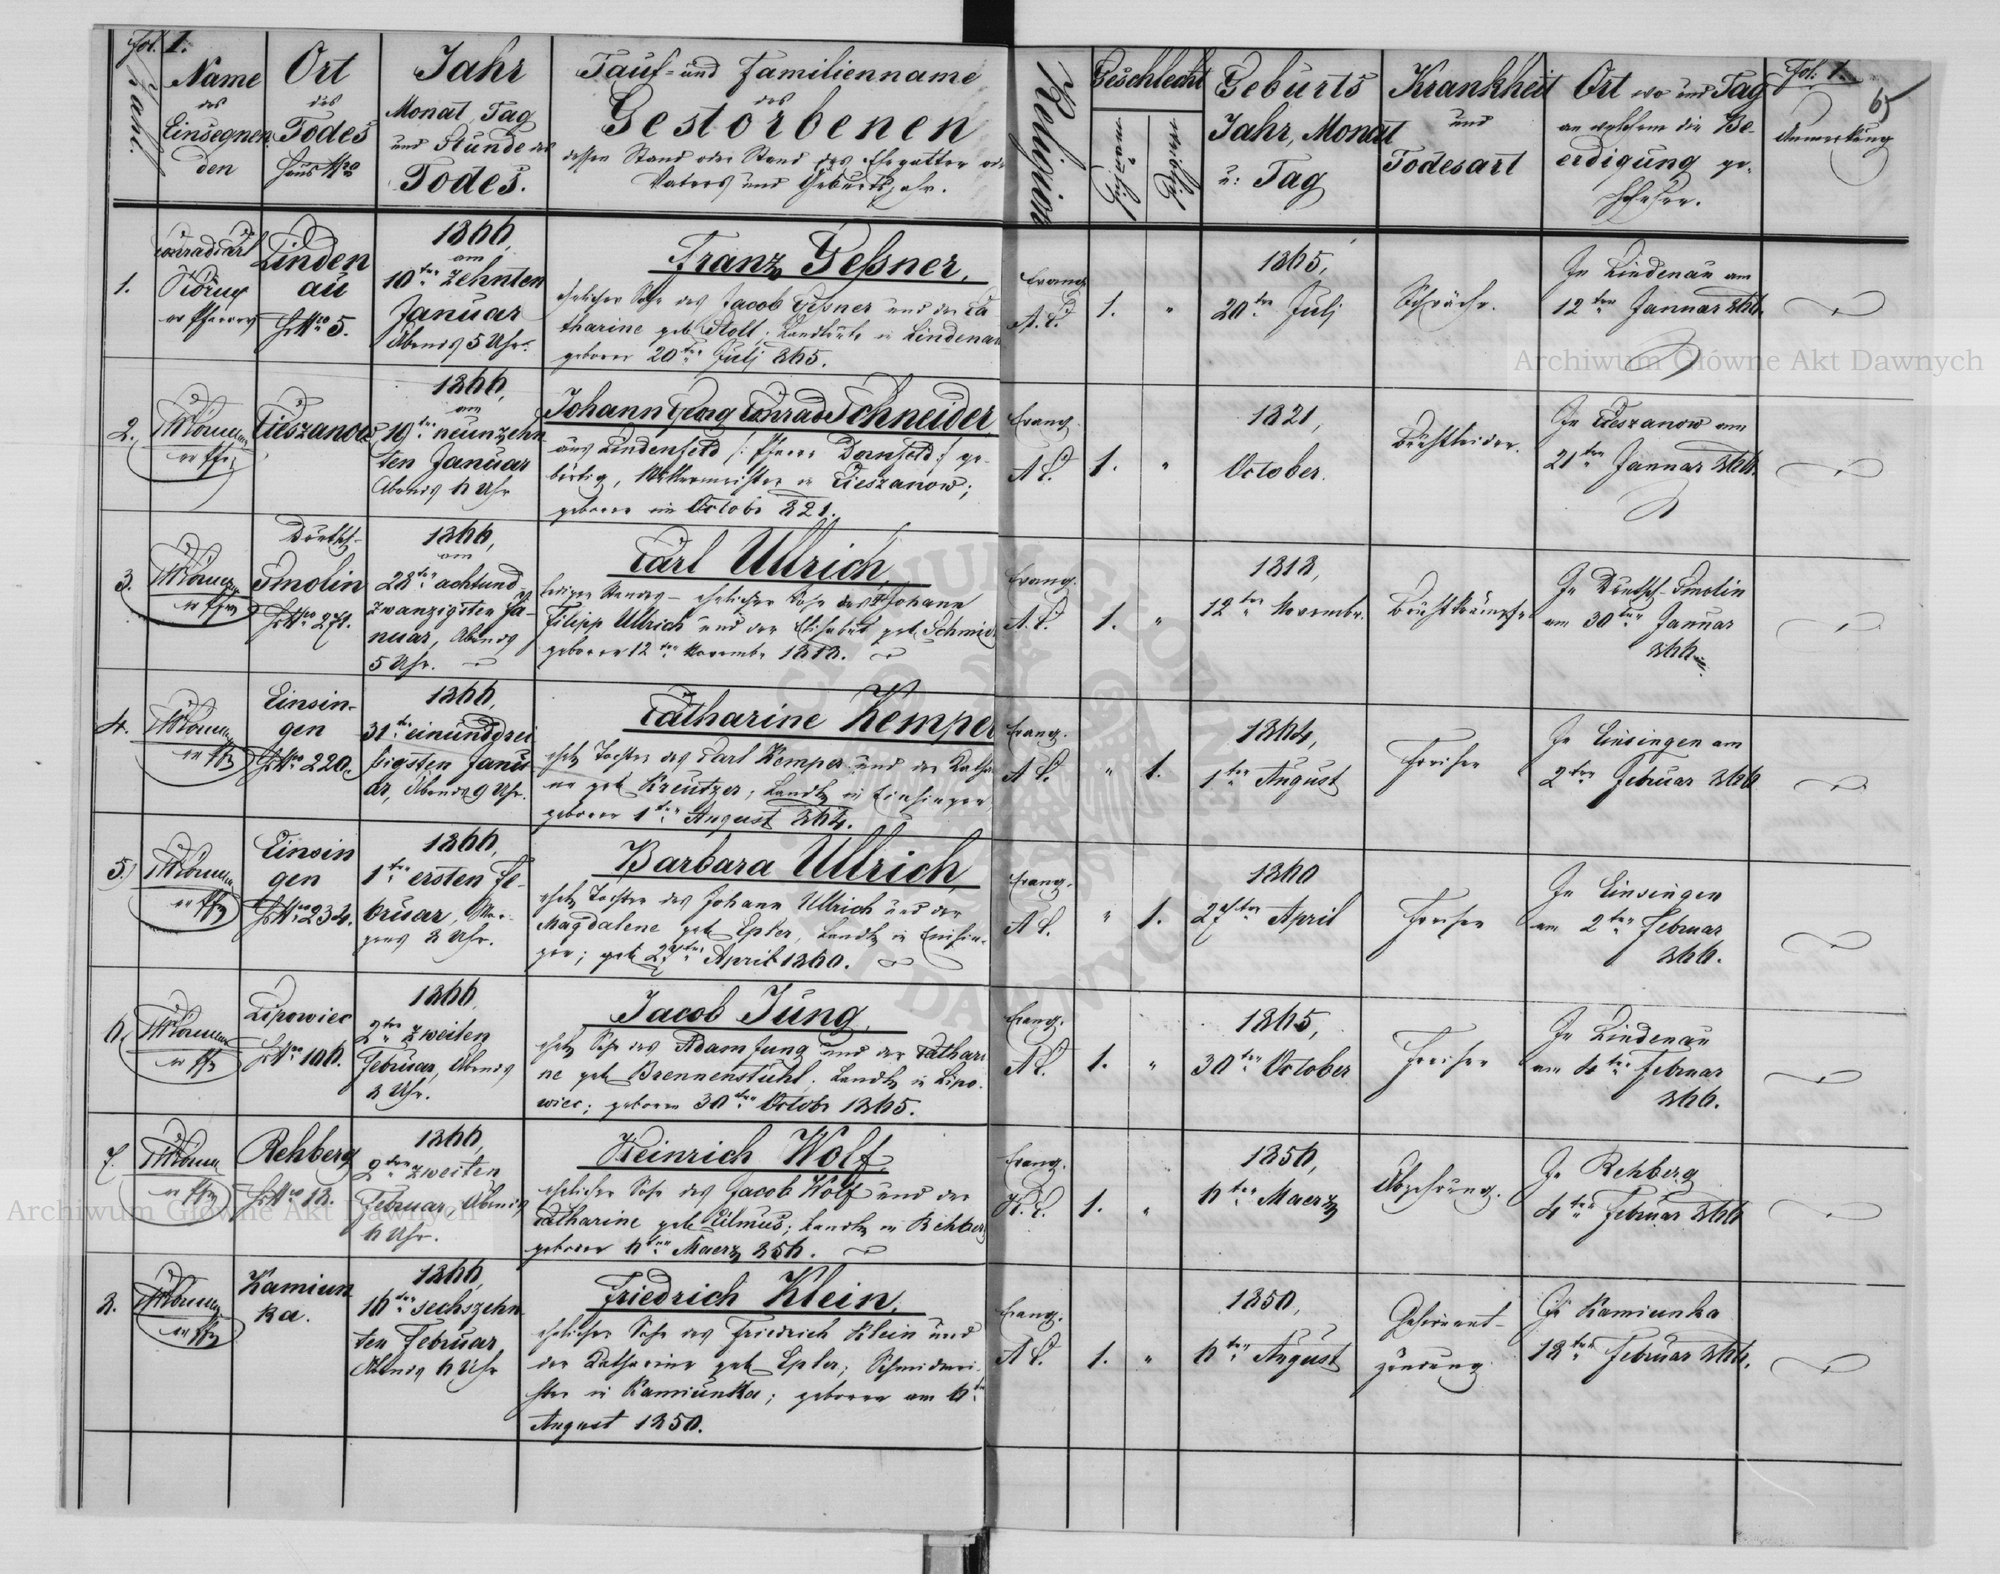 Fol. 1.
Zahl.
Name
des
Einsegnen
den
Ort
des
Todes
Haus Nro
Jahr
Monat, Tag
und Stunde des
Todes.
Tauf- und Familienname
des
Gestorbenen
dessen Stand oder Stand des Ehegatten oder
Vaters und Geburtsjahr.
Religion
Geschlecht
männlich
weiblich
Geburts
Jahr, Monat
u: Tag
Krankheit
und
Todesart
Ort wo und Tag
an welchem die Be-
erdigung ge-
schehen.
Fol: 1.
6
Anmerkung
1.
Pfarrer
Linden
au
HNro 5.
1866,
am
10ten zehnten
Januar
Abends 5 Uhr.
Franz Geßner,
ehelicher Sohn des Jacob Geßner und der Ca-
tharine geb. Stoll. Landleute in Lindenau
geboren 20ten Julj 865.
Evang.
A. C.
1.
"
1865,
20ten Julj
Schwäche.
In Lindenau am
12ten Januar 866.
2.
Cieszanow
1866,
am
19ten neunzehn
ten Januar
Abends 6 Uhr
Johann Georg Conrad Schneider,
aus Lindenfeld /: Pfarre Dornfeld :/ ge-
bürtig, Müllermeister in Cieszanow;
geboren im Octobr 821.
Evang.
A C.
1.
"
1821,
October.
Brustleiden.
In Cieszanow am
21ten Januar 866.
3.
Deutsch-
Smolin
HNro 271.
1866,
am
28ten achtund
zwanzigsten Ja-
nuar, Abends
5 Uhr.
Carl Ullrich,
ledigen Standes – ehelicher Sohn des Johann
Filipp Ullrich und der Elisabeth geb. Schmid
geboren 12ten Novembr 1818.
Evang.
A. C.
1.
"
1818,
12ten Novembr.
Brustkrämpfe
In Deutsch-Smolin
am 30ten Januar
866.
4.
Einsin-
gen
HNro 220.
1866,
31ten einunddrei
ßigsten Janu
ar, Abends 9 Uhr.
Catharine Kemper
ehel. Tochter des Carl Kemper und der Catha-
ne geb. Kreutzer, Landl. in Einsingen,
geboren 1ten August 864.
Evang.
A C.
"
1.
1864,
1ten August
Fraisen
In Einsingen am
2ten Februar 866
5.
Einsin
gen
HNro 234.
1866,
1ten ersten Fe-
bruar, Mor-
gens 3 Uhr.
Barbara Ullrich,
ehel. Tochter des Johann Ullrich und der
Magdalene geb. Epler, Landl. in Einsin-
gen; geb. 27ten April 1860.
Evang.
A C.
"
1.
1860
27ten April
Fraisen
In Einsingen
am 2ten Februar
866.
6.
Lipowiec
HNro 106.
1866,
2ten zweiten
Februar, Abends
8 Uhr.
Jacob Jung,
ehel. Sohn des Adam Jung und der Cathari
ne geb. Brennenstuhl. Landl. in Lipo-
wiec; geboren 30ten Octobr 1865.
Evang.
A C.
1.
"
1865,
30ten October
Fraisen
In Lindenau
am 4ten Februar
866.
7.
Rehberg
HNro 18.
1866,
2ten zweiten
Februar, Abends
6 Uhr.
Heinrich Wolf
ehelicher Sohn des Jacob Wolf und der
Catharine geb. Filmus; Landl. in Rehberg
geboren 6ten Maerz 856.
Evang.
H. C.
1.
"
1856,
6ten Maerz
Abzehrung.
In Rehberg
4ten Februar 866
8.
Kamiun
ka.
1866,
16ten sechszehn
ten Februar
Abends 6 Uhr
Friedrich Klein,
ehelicher Sohn des Friedrich Klein und
der Catharine geb. Epler; Schmidmei-
ster in Kamiunka; geboren am 6ten
August 1850.
Evang.
A C.
1.
"
1850,
6ten August
Gehirnent-
zündung.
In Kamiunka
18ten Februar 866.
Archiwum Główne Akt Dawnych
Archiwum Główne Akt Dawnych